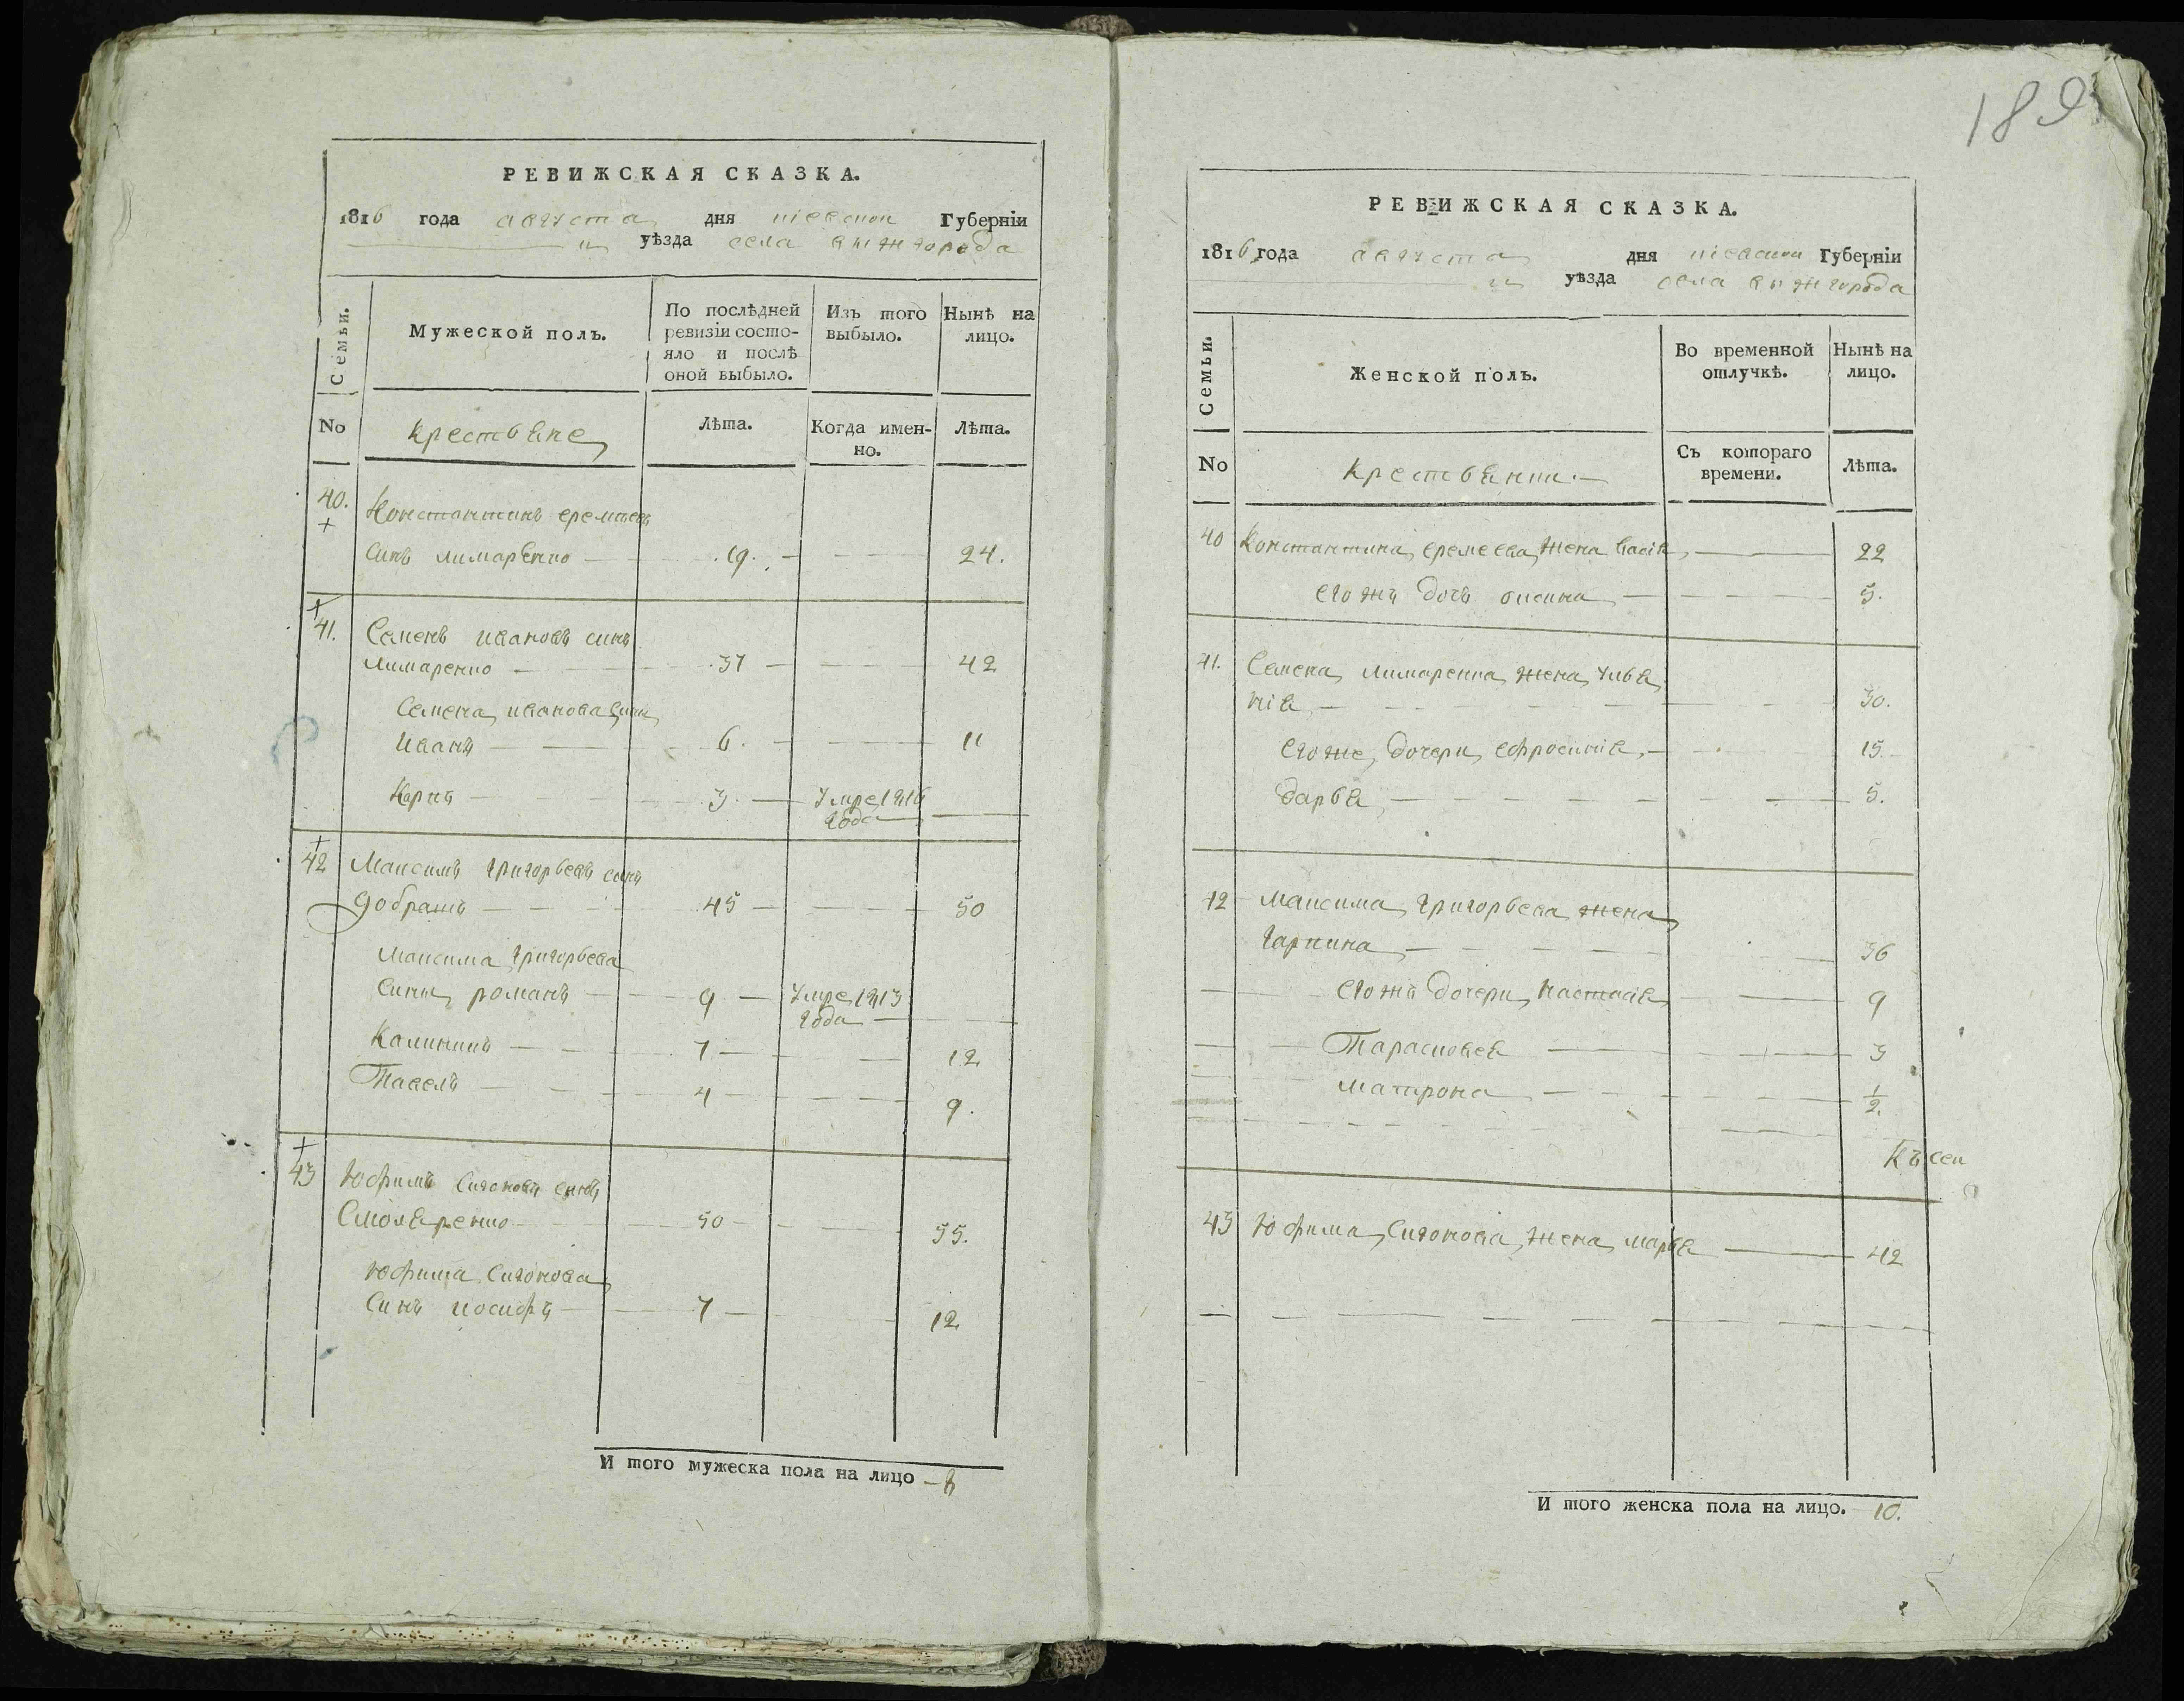 РЕВИЖСКАЯ СКАЗКА.
1816 года августа дня киевской Губерніи
уѣзда села вышгорода
Семьи.
Мужеской полъ.
По послѣдней
ревизіи состо-
яло и послѣ
оной выбыло.
Изъ того
выбыло.
Нынѣ на
лицо.
No
крестьяне
Лѣта.
Когда имен-
но.
Лѣта.
40. Константинъ еремѣевъ
синъ лимаренко 19. 24.
41. Семенъ ивановъ синъ
лимаренко 37 42
Семена иванова сини
иванъ 6. 11
Карпъ 3. Умре 1816
года
42 Максимъ григорьевъ синъ
добрашъ 45 50
Максима григорьева
сини романъ 9 Умре 1813
года
Калиникъ 7 12
Павелъ 4 9.
43 Юфимъ сидоновъ синъ
Смоляренко 50 55.
Юфима сидонова
синъ иосифъ 7 12
И того мужеска пола на лицо 8
189
РЕВИЖСКАЯ СКАЗКА.
1816 года августа дня киевской Губерніи
уѣзда села вышгорода
Семьи.
Женской полъ.
Во временной
отлучкѣ.
Нынѣ на
лицо.
No
крестьянки.
Съ котораго
времени.
Лѣта.
40 Константина еремеева жена 22
его жъ дочь 5.
41. Семена лимаренка жена улья
нія 30.
его же дочери ефросинія 15.
дарья 5.
42 Максима григорьева жена
гарпина 36
его жъ дочери настасія 9
Парасковея 3
матрона 1/2.
43 Юфима сидонова жена марья 42
И того женска пола на лицо. 10.